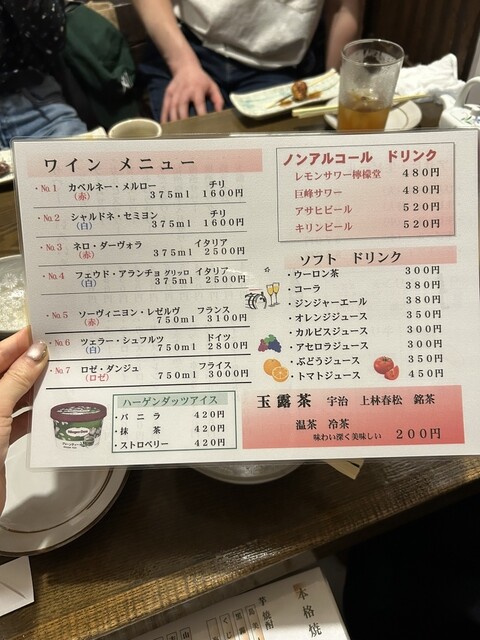 ワイン メニュー
・No.1 カベルネー・メルロー チリ
(赤) 375ml 1600円
・No.2 シャルドネ・セミヨン チリ
(白) 375ml 1600円
・No.3 ネロ・ダーヴォラ イタリア
(赤) 375ml 2500円
・No.4 フェウド・アランチョ グリッロ イタリア
(白) 375ml 2500円
・No.5 ソーヴィニヨン・レゼルヴ フランス
(赤) 750ml 3100円
・No.6 ツェラー・シュフルツ ドイツ
(白) 750ml 2800円
・No.7 ロゼ・ダンジュ フライス
(ロゼ) 750ml 3000円
ハーゲンダッツアイス
・バニラ 420円
・抹茶 420円
・ストロベリー 420円
ノンアルコール ドリンク
レモンサワー檸檬堂 480円
巨峰サワー 480円
アサヒビール 520円
キリンビール 520円
ソフト ドリンク
・ウーロン茶 300円
・コーラ 380円
・ジンジャーエール 380円
・オレンジジュース 350円
・カルピスジュース 300円
・アセロラジュース 300円
・ぶどうジュース 350円
・トマトジュース 450円
玉露茶 宇治 上林春松 銘茶
温茶 冷茶
味わい深く美味しい 200円
本格焼
芋焼酎